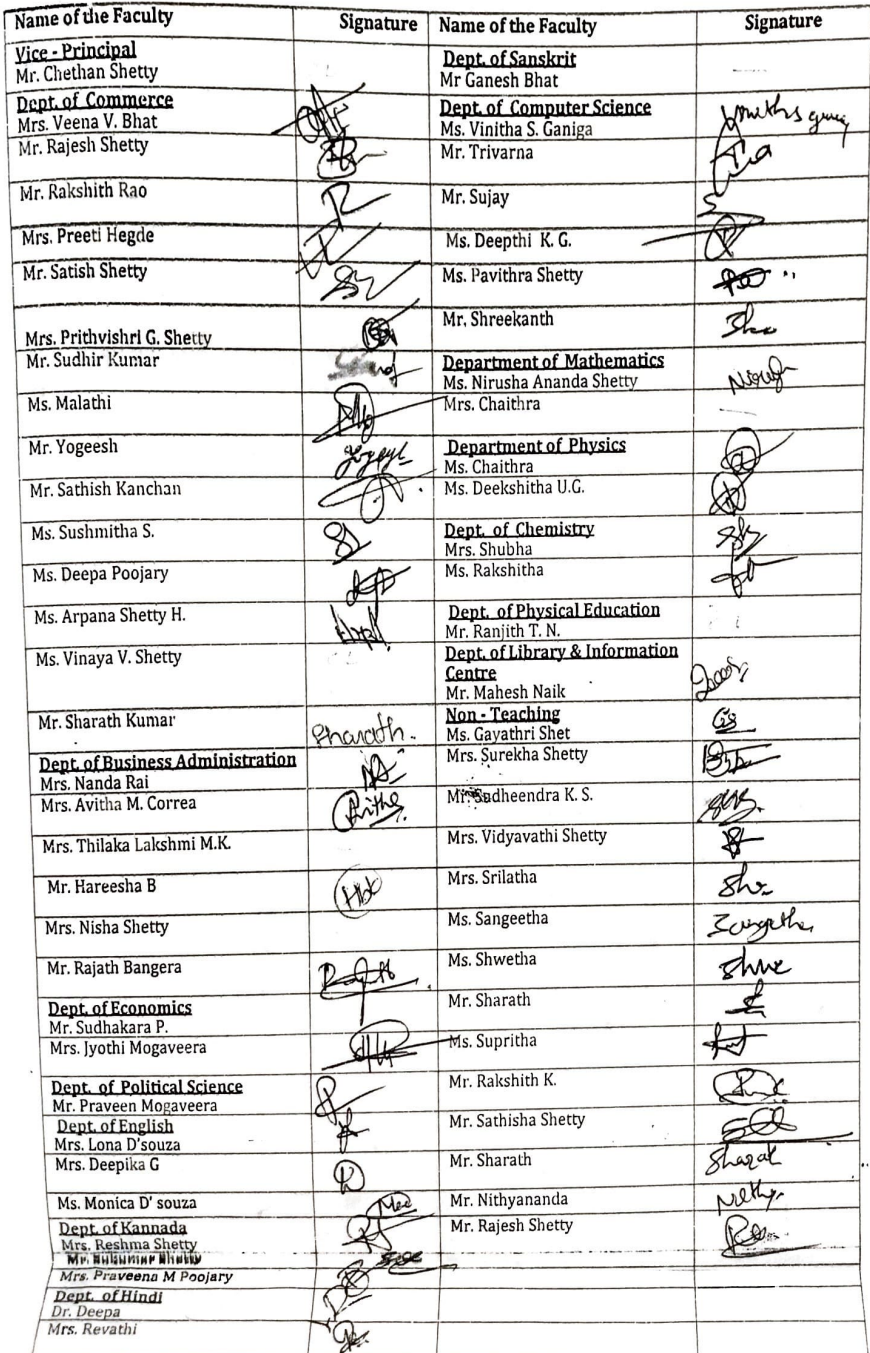 Name of the Faculty Signature Name of the Faculty Signature
Vice - Principal
Mr. Chethan Shetty
Dept. of Sanskrit
Mr Ganesh Bhat
Dept. of Commerce
Mrs. Veena V. Bhat
Dept. of Computer Science
Ms. Vinitha S. Ganiga
Mr. Rajesh Shetty
Mr. Trivarna
Mr. Rakshith Rao
Mr. Sujay
Mrs. Preeti Hegde
Ms. Deepthi K. G.
Mr. Satish Shetty
Ms. Pavithra Shetty
Mrs. Prithvishri G. Shetty
Mr. Shreekanth
Mr. Sudhir Kumar
Department of Mathematics
Ms. Nirusha Ananda Shetty
Ms. Malathi
Mrs. Chaithra
Mr. Yogeesh
Department of Physics
Ms. Chaithra
Mr. Sathish Kanchan
Ms. Deekshitha U.G.
Ms. Sushmitha S.
Dept. of Chemistry
Mrs. Shubha
Ms. Deepa Poojary
Ms. Rakshitha
Ms. Arpana Shetty H.
Dept. of Physical Education
Mr. Ranjith T. N.
Ms. Vinaya V. Shetty
Dept. of Library & Information
Centre
Mr. Mahesh Naik
Mr. Sharath Kumar
Sharath.
Non - Teaching
Ms. Gayathri Shet
GS
Dept. of Business Administration
Mrs. Nanda Rai
Mrs. Surekha Shetty
Mrs. Avitha M. Correa
Avitha
Mr. Sudheendra K. S.
Mrs. Thilaka Lakshmi M.K.
Mrs. Vidyavathi Shetty
Mr. Hareesha B
Mrs. Srilatha
Mrs. Nisha Shetty
Ms. Sangeetha
Sangeetha
Mr. Rajath Bangera
Ms. Shwetha
Shwe
Dept. of Economics
Mr. Sudhakara P.
Mr. Sharath
Mrs. Jyothi Mogaveera
Ms. Supritha
Dept. of Political Science
Mr. Praveen Mogaveera
Mr. Rakshith K.
Dept. of English
Mrs. Lona D'souza
Mr. Sathisha Shetty
Mrs. Deepika G
Mr. Sharath
Sharat
Ms. Monica D' souza
Mr. Nithyananda
Dept. of Kannada
Mrs. Reshma Shetty
Mr. Rajesh Shetty
Mrs. Praveena M Poojary
Dept. of Hindi
Dr. Deepa
Mrs. Revathi